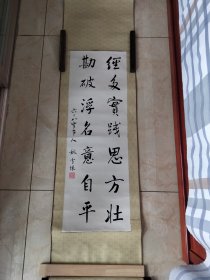 經多實踐思方壯
勘破浮名意自平